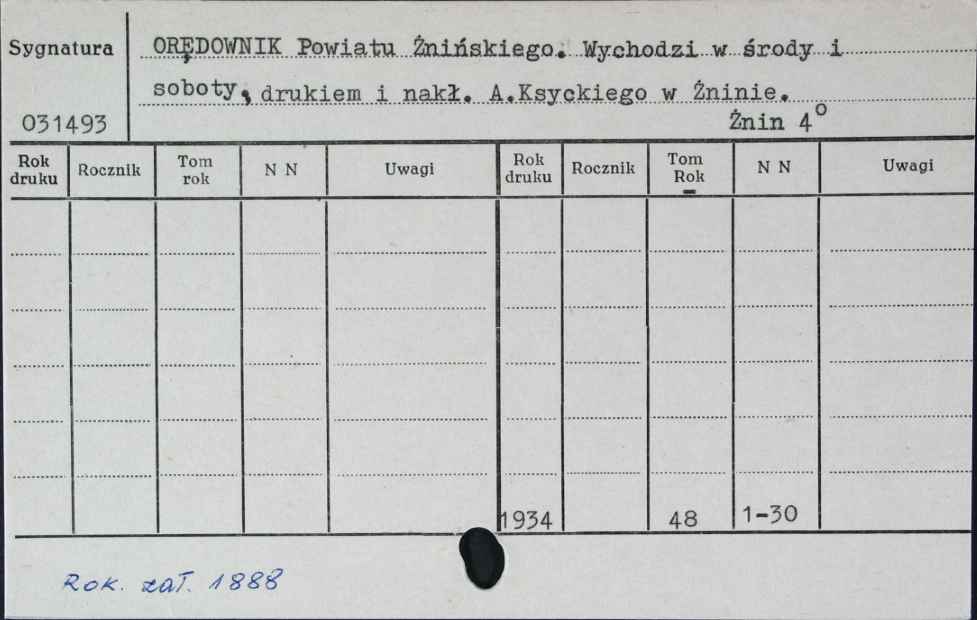 Sygnatura
ORĘDOWNIK Powiatu Żnińskiego. Wychodzi w środy i
soboty, drukiem i nakł. A.Ksyckiego w Żninie.
031493
Żnin 4º
Rok druku Rocznik Tom rok N N Uwagi Rok druku Rocznik Tom Rok N N Uwagi
1934 48 1-30
Rok. zał. 1888